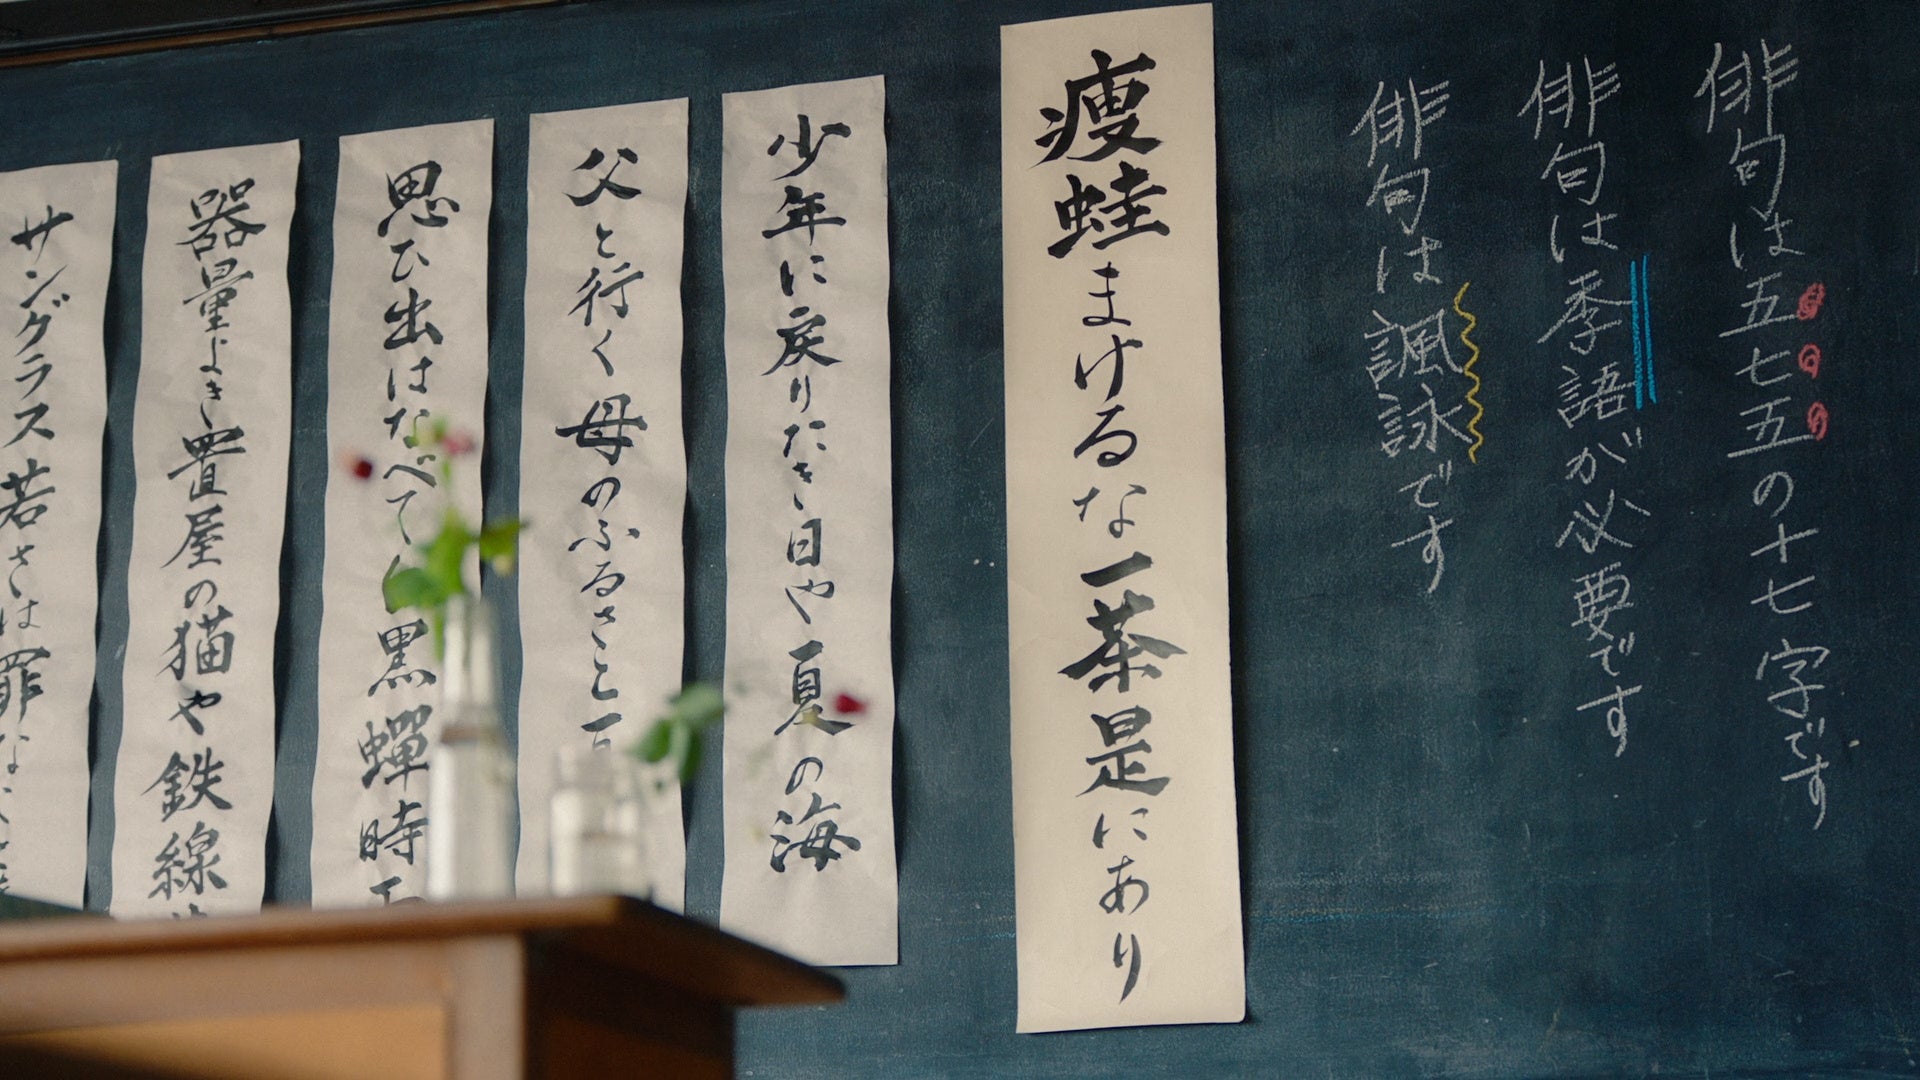 俳句は五七五の十七字です
俳句は季語が必要です
俳句は諷詠です
痩蛙まけるな一茶是にあり
少年に戻りたき日や夏の海
父と行く母のふるさと一
思ひ出はなべて 黒蟬時
器量よき置屋の猫や鉄線
サングラス若さは罪な